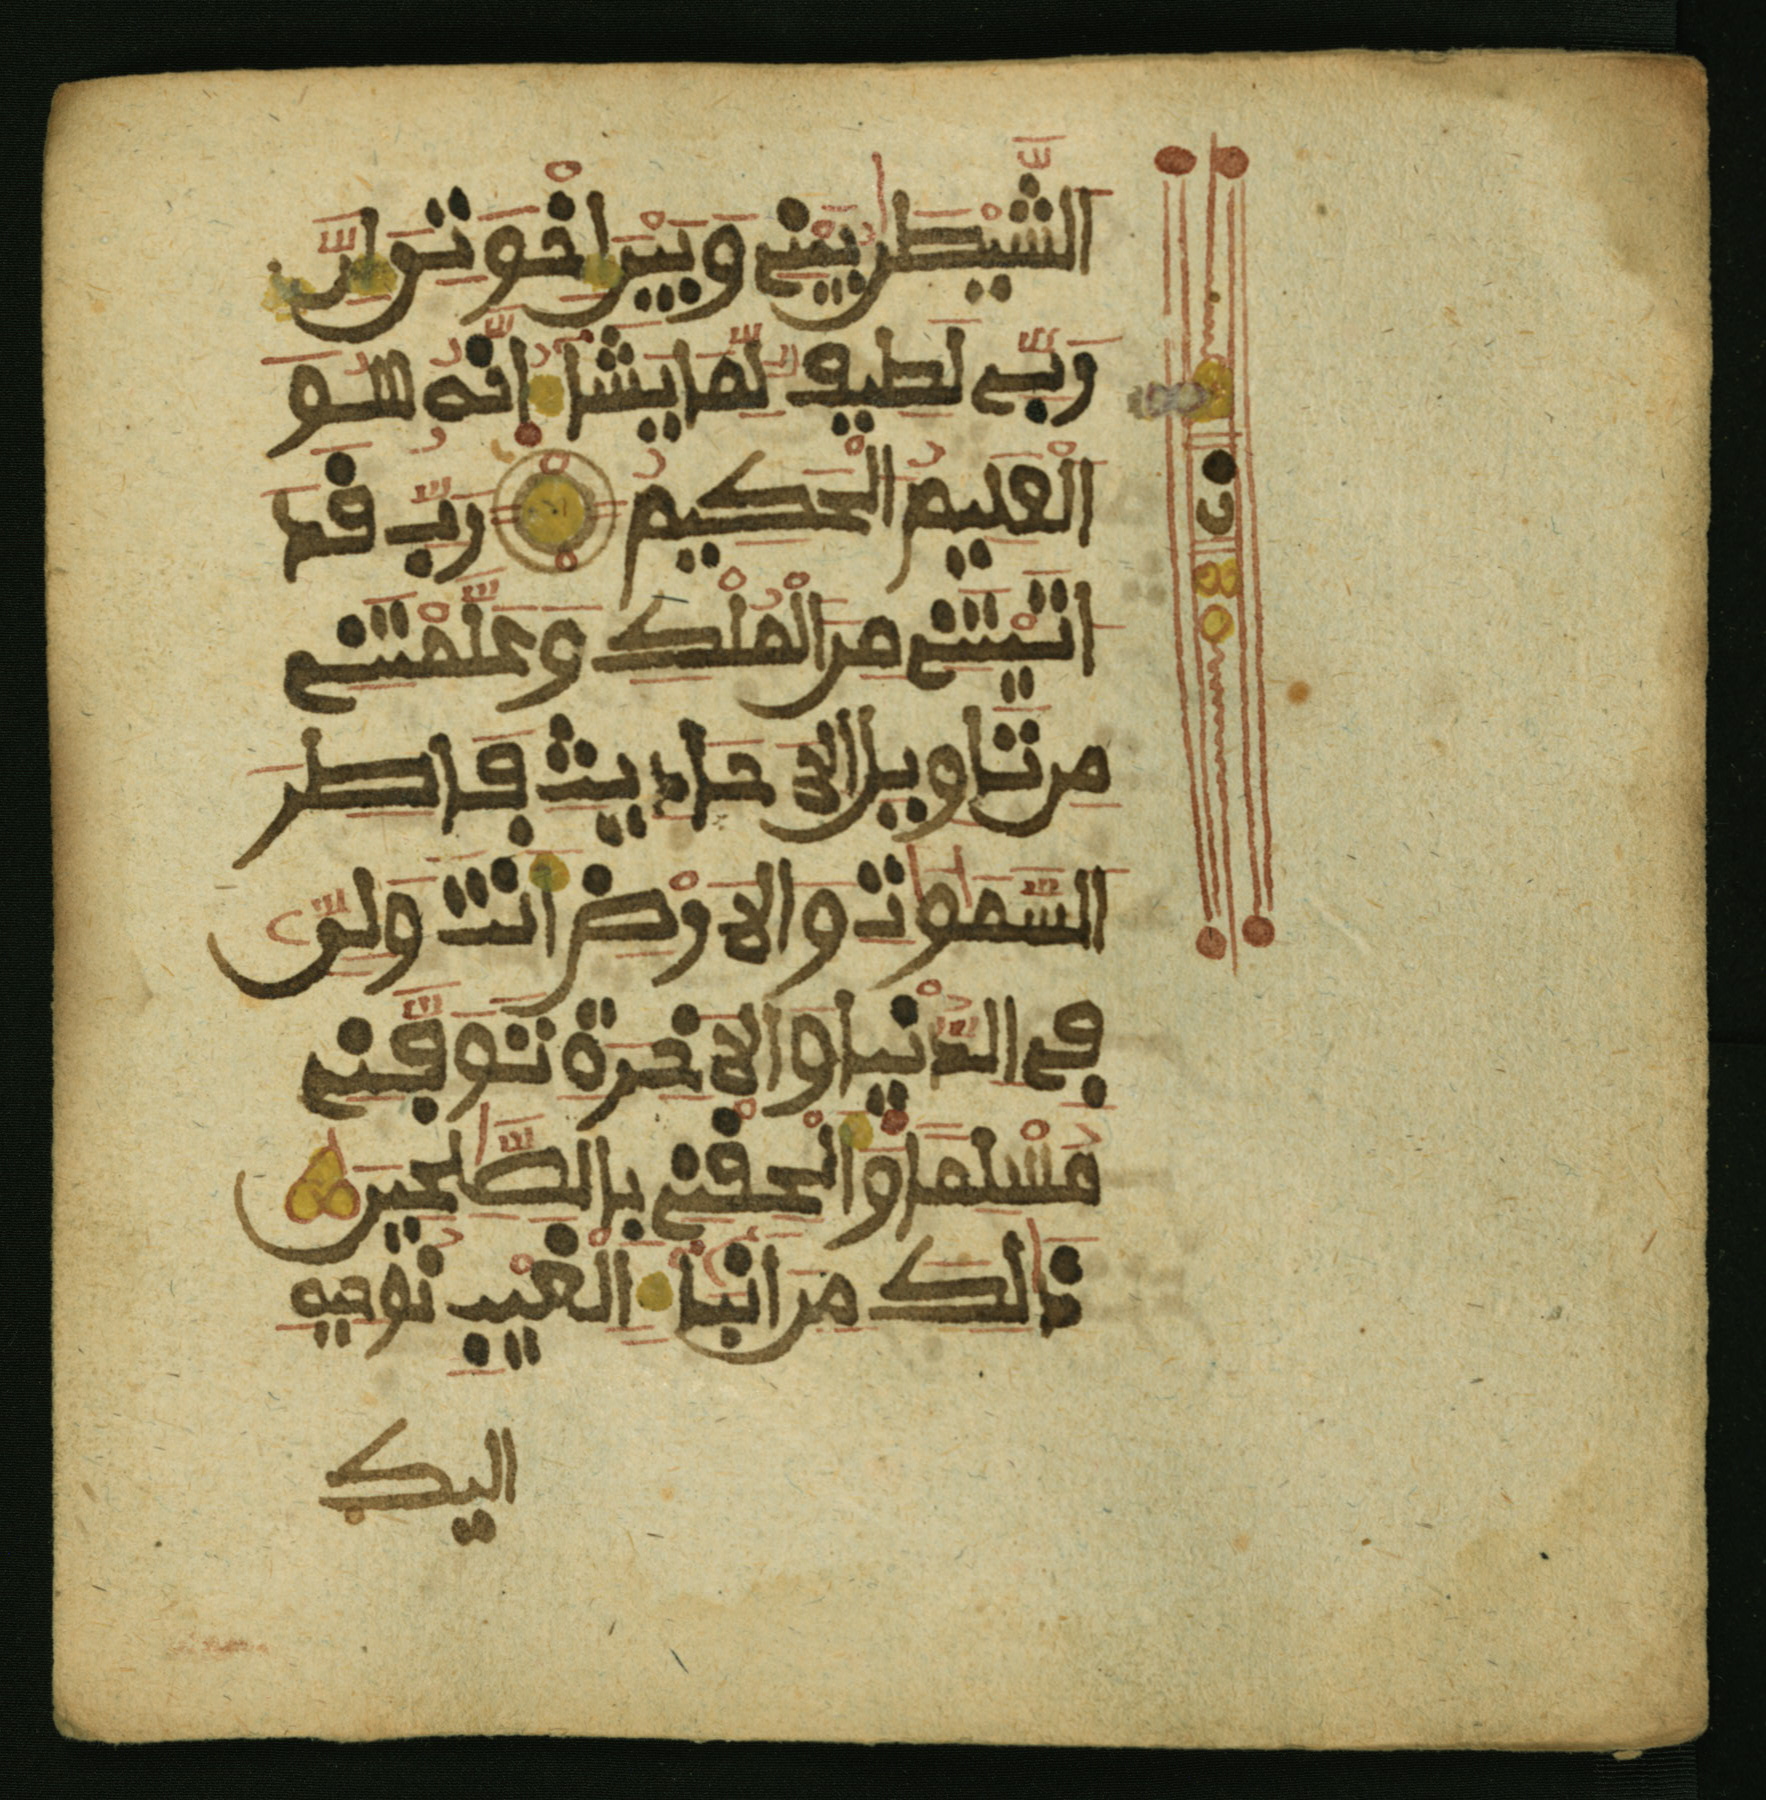 الشَّيْطٰن بَيْنِي وَبَيْنَ إِخْوَتِي إِنَّ
رَبِّي لَطِيفٌ لِّمَا يَشَا إِنَّهُ هُوَ
الْعَلِيمُ الْحَكِيمُ رَبِّ قَد
اتَيْتَنِي مِنَ الْمُلْكِ وَعَلَّمْتَنِي
مِن تَاوِيلِ الاحَادِيثِ فَاطِرَ
السَّمٰوٰتِ وَالارْضِ أَنتَ وَلِيِّ
فِي الدُّنْيَا وَالاخِرَةِ تَوَفَّنِي
مُسْلِمًا وَأَلْحِقْنِي بِالصَّٰلِحِينَ
ذَٰلِكَ مِنْ أَنبَا الْغَيْبِ نُوحِيهِ
اليك